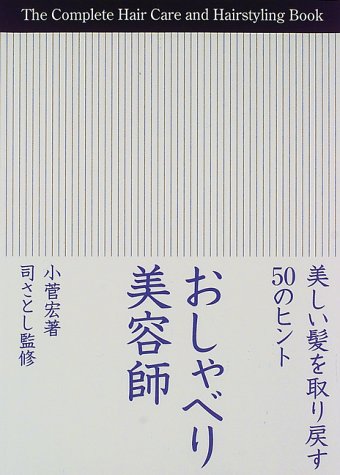 The Complete Hair Care and Hairstyling Book
美しい髪を取り戻す
50のヒント
おしゃべり
美容師
小菅宏著
司さとし監修